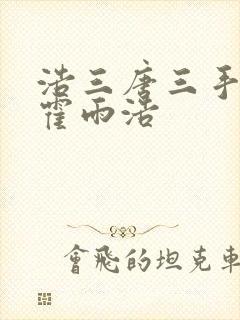 浩三唐三手
霍雨浩
會飛的坦克車